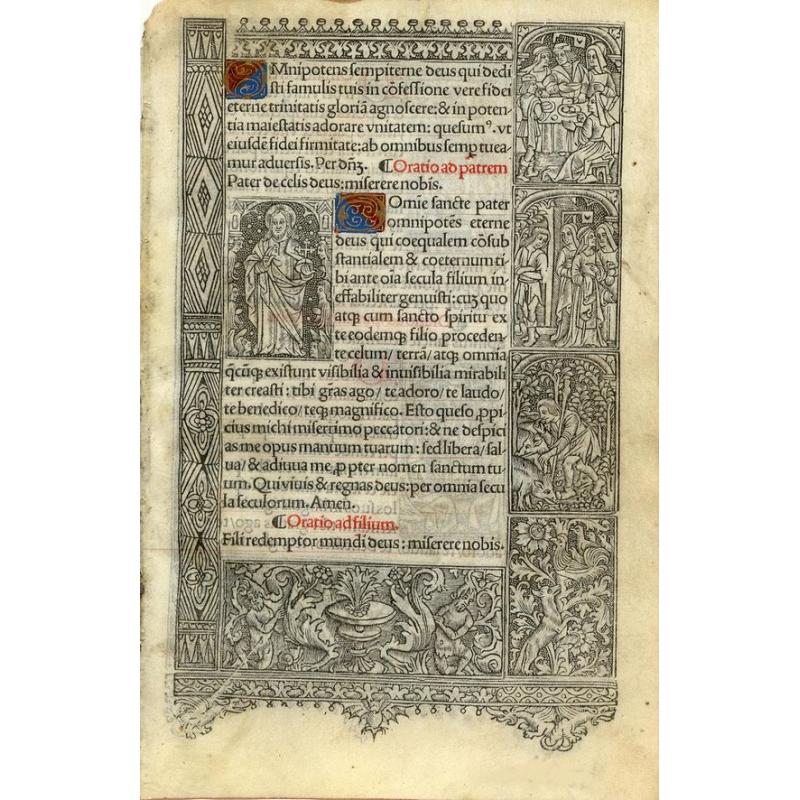 OMnipotens sempiterne deus qui dedi
sti famulis tuis in cōfessione vere fidei
eterne trinitatis gloriā agnoscere: & in poten-
tia maiestatis adorare vnitatem: quesumꝰ. vt
eiusdē fidei firmitate: ab omnibus semp tuea
mur aduersis. Per dn̄ꝫ. ⸿Oratio ad patrem
Pater de celis deus: miserere nobis.
DOmie sancte pater
omnipotēs eterne
deus qui coequalem cōsub
stantialem & coeternum ti
bi ante oīa secula filium in
effabiliter genuisti: cuꝫ quo
atqꝫ cum sancto spiritu ex
te eodemqꝫ filio proceden-
te celum/ terrā/ atqꝫ omnia
q̄cūqꝫ existunt visibilia & inuisibilia mirabili
ter creasti: tibi gr̄as ago/ te adoro/ te laudo/
te benedico/ teqꝫ magnifico. Esto queso ꝓpi
cius michi miserrimo peccatori: & ne despici
as me opus manuum tuarum: sed libera/ sal
ua/ & adiuua me, ꝓpter nomen sanctum tu-
um. Qui viuis & regnas deus: per omnia secu
la seculorum. Amen.
⸿Oratio ad filium.
Fili redemptor mundi deus: miserere nobis.